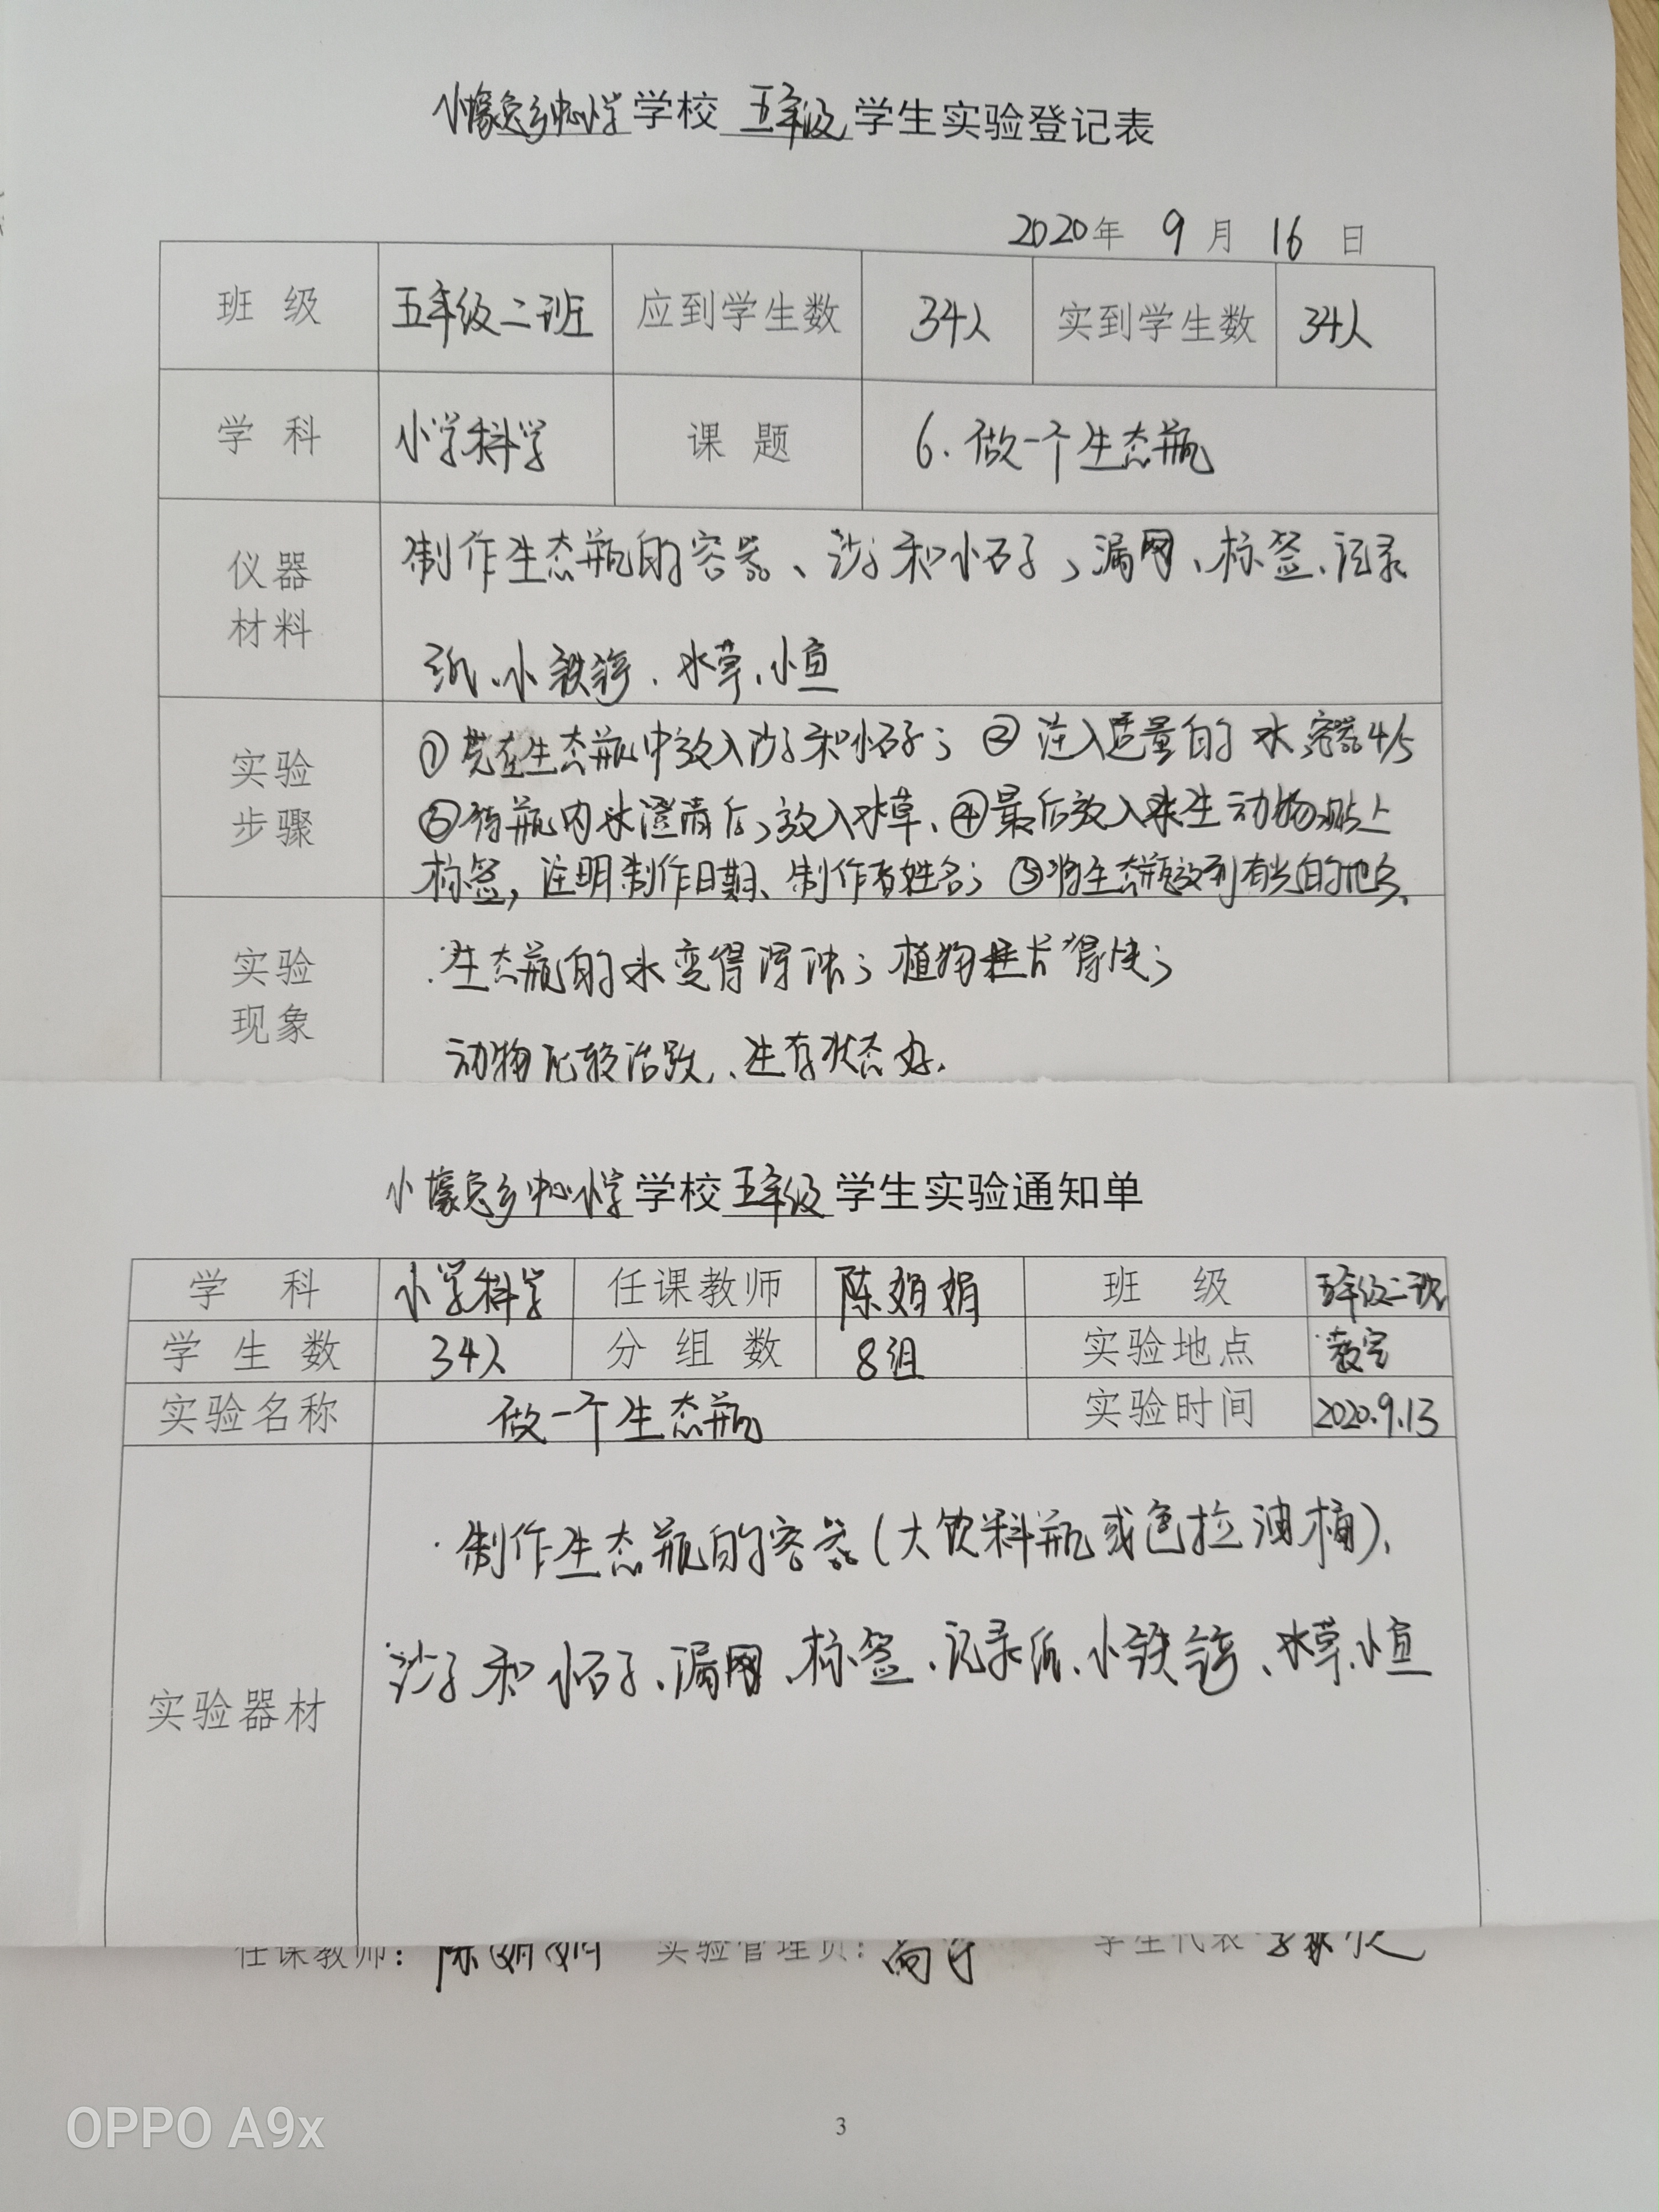 小壕兔乡中心小学学校 五年级 学生实验登记表
2020年 9 月 16 日
班 级 五年级二班 应到学生数 34人 实到学生数 34人
学 科 小学科学 课 题 6.做一个生态瓶
仪器材料
制作生态瓶的容器、沙子和小石子、漏网、标签、记录
纸、小铁锈、水草、小鱼
实验步骤
①先在生态瓶中放入沙子和小石子;②注入适量的水容器4/5
③待瓶内水澄清后,放入水草、④最后放入水生动物贴上
标签,注明制作日期、制作者姓名;⑤将生态瓶放到有光的地方、
实验现象
生态瓶的水变得浑浊;植物生长得快;
动物比较活跃、生存状态好.
小壕兔乡中心小学学校五年级学生实验通知单
学 科 小学科学 任课教师 陈娟娟 班 级 五年级二班
学 生 数 34人 分 组 数 8组 实验地点 教室
实验名称 做一个生态瓶 实验时间 2020.9.13
制作生态瓶的容器(大饮料瓶或色拉油桶)、
沙子和小石子、漏网、标签、记录纸、小铁锈、水草、小鱼
实验器材
任课教师: 陈娟娟 实验管理员: 学生代表
OPPO A9x
3